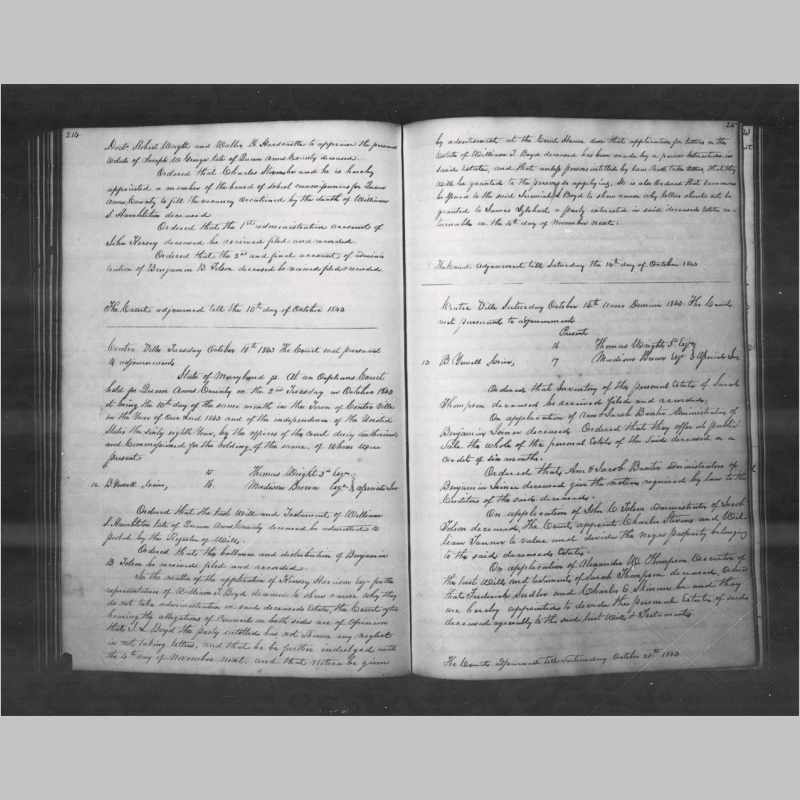 214
Doct. Robert Wright and Walter H. Hardcastle to appraise the personal
estate of Joseph W. George late of Queen Anns County deceased.
Ordered that Charles be and he is hereby
appointed a member of the board of school commissioners for Queen
Anns County to fill the vacancy occasioned by the death of William
S. Hambleton deceased
Ordered that the 1st administration accounts of
John Hersey deceased be received filed and recorded.
Ordered that the 2nd and final account of admin
istration of Benjamin B. Tolson deceased be received filed & recorded
The Court adjourned till the 10th day of October 1843
Centre Ville Tuesday October 10th 1843 The Court met pursuant
to adjournment
State of Maryland sc. At an Orphans Court
held for Queen Anns County on the 2nd Tuesday in October 1843
it being the 10th day of the same month in the Town of Centre Ville
in the Year of Our Lord 1843 and of the independence of the United
States the sixty eighth Year, by the officers of the Court duly authorised
and Commissioned for the holding of the same, of whom were
present
15 Thomas Wright 3rd Esqr
12 B. Gwinn 16 Madison Brown Esqr associate Jus
Ordered that the last Will and Testament of William
S. Hambleton late of Queen Anns County deceased be admitted to
probat by the Register of Wills.
Ordered that the ballance and distribution of Benjamin
B. Tolson be received filed and recorded.
In the matter of the application of Hersey Harrison Esqr for the
representatives of William T. Boyd deceased to shew cause why they
do not take administration on said deceaseds estate, the Court after
hearing the allegations of Council on both sides are of opinion
that J. L. Boyd the party entitled has not shewn any neglect
in not taking letters, and that he be further indulged until
the 4th day of November next, and that notice be given
by advertisement at the Court House door that application for letters on the
estate of William T. Boyd deceased has been made by a person interested in
said estate, and that unless persons entitled by law take letters that they
will be granted to the persons so applying. It is also Ordered that summons
be issued to the said Jeremiah L. Boyd to shew cause why letters should not be
granted to James a party interested in said deceaseds estate re-
turnable on the 4th day of November next.
The Court adjourned till Saturday the 14th day of October 1843
Centre Ville Saturday October 14th Anno Domini 1843 The Court
met pursuant to adjournment
Present
16 Thomas Wright 3rd Esqr
13 B. Gwinn 17 Madison Brown Esqr associate Jus
Ordered that Inventory of the personal estate of Sarah
Thompson deceased be received filed and recorded.
On application of Ann & Jacob Baxter Administrators of
Benjamin Joiner deceased Ordered that they offer at public
Sale the whole of the personal Estate of the said deceased on a
credit of six months.
Ordered that, Ann & Jacob Baxter administrators of
Benjamin Joiner deceased give the notice required by law to the
Creditors of the said deceased.
On application of John C. Tolson administrator of Jacob
Tolson deceased, The Court, appoint Charles Stevens and Wil-
liam Tanner to value and divide the negro property belonging
to the said deceaseds Estate.
On application of Alexander W. Thompson Executor of
the last Will and testament of Sarah Thompson deceased, Ordered
that Frederick Sudler and Charles E. Skinner be and they
are hereby appointed to devide the personal Estate of said
deceased agreeably to the said last Will & Testament.
The Court Adjourned till Saturday October 21st 1843